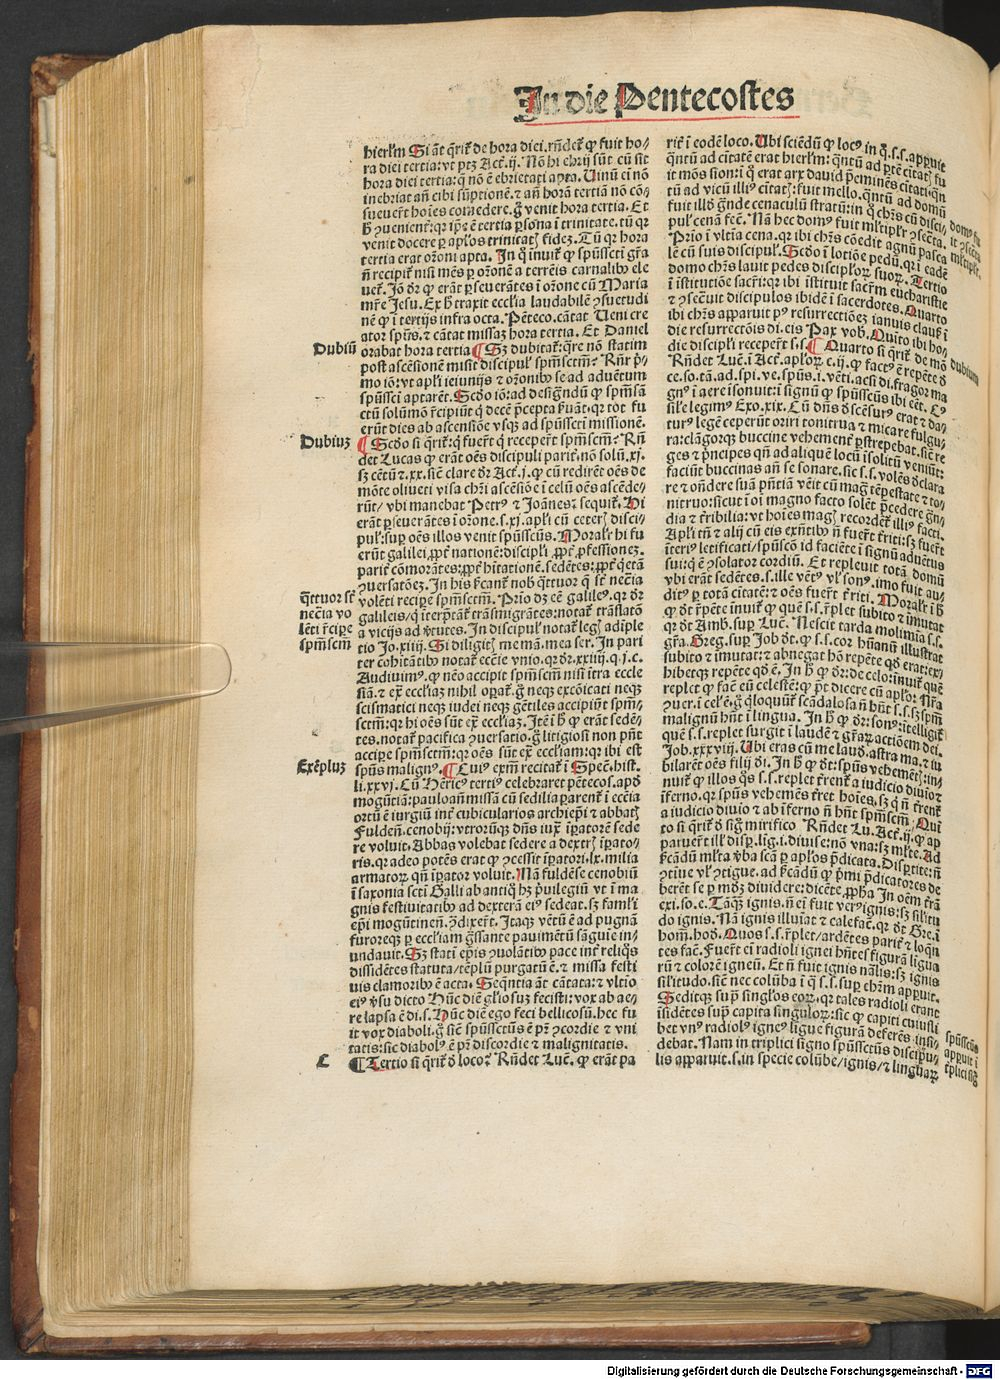 In die Pentecostes
hierłm Si āt q̄rit̄ de hora diei. rñdet̄ ꝙ fuit ho⸗
ra diei tertia: vt ptꝫ Act̄. ij. Nō hi ebrij sūt cū sit
hora diei tertia: q̄ nō ē ebrietati apta. Uinū ei nō
inebriat añ cibi sūptionē. ⁊ añ horā tertiā nō cō⸗
sueuer̄t hoīes comedere. ḡ venit hora tertia. Et
venit docere ꝑ apłos trinitatꝭ fidez. Tū qꝛ hora
tertia erat orōni apta. In q̄ inuit̄ ꝙ spūsscti gr̄a
ñ recipit̄ nisi mēs ꝑ orōnē a terrēis carnalibꝰ ele
uet̄. Iō dr̄ ꝙ erāt ꝑseuerātes ī orōne cū Maria
mr̄e Iesu. Ex h̄ traxit ecclīa laudabilē ꝯsuetudi
nē ꝙ ī tertijs infra octa. Pēteco. cātat Ueni cre
ator spūs. ⁊ cātat missaꝫ hora tertia. Et Daniel
Dubiū
orabat hora tertia ¶ Sꝫ dubitat̄: q̄re nō statim
post ascēsionē misit discipuł spm̄sctm̄: Rñr p̄⸗
mo iō: vt apłi ieiunijs ⁊ orōnibꝰ se ad aduētum
spūssci aptarēt. Scd̄o iō: ad designādū ꝙ spm̄scā
erūt dies ab ascensiōe vsqꝫ ad spūsscti missionē.
Dubiuꝫ
¶ Scd̄o si q̄rit̄: q̄ fuer̄t q̄ receper̄t spm̄sctm̄: Rñ
det Lucas ꝙ erāt oēs discipuli parit̄. nō solū. xj.
sꝫ cētū ⁊. xx. sic̄ clare dr̄ Act̄. j. ꝙ cū redirēt oēs de
mōte oliueti visa chr̄i ascēsiōe ī celū oēs ascēde⸗
rūt/ vbi manebat Petrꝰ ⁊ Ioānes: ⁊ sequit̄. Hi
erāt ꝑseuerātes ī orōne. s. xj. apłi cū ceterꝭ disci⸗
puł: suꝑ oēs illos venit spūsscūs. Morałr hi fu
erūt galilei, ꝓpt̄ nationē: discipłi, ꝓpt̄ ꝓfessionez.
parit̄ cōmorātes: ꝓpt̄ hītationē. sedētes: ꝓpt̄ q̄etā
ꝯuersatōez. In his p̄cant̄ nob̄ q̄ttuor q̄ st̄ nēcīa
q̄ttuor st̄
nēcīa vo
lēti r̄cipe
spm̄scm̄
volēti recipe spm̄sctm̄. Prīo dꝫ eē galileꝰ. qꝛ dr̄
galileis/ q̄ īterp̄tat̄ trāsmigrātes: notat̄ trāslatō
a vicijs ad v̄tutes. In discipuł notat̄ legꝭ adiple
tio Io. xiiij. Si diligitꝭ me mā. mea ser. In pari
ter cohītatibꝰ notat̄ eccīe vnio. qꝛ dr̄. xxiiij. q. j. c.
Audiuimꝰ. ꝙ nēo accipit spm̄scm̄ nisi ītra eccle
siā. ⁊ ex̄ ecclīaꝫ nihil opat̄. ḡ neqꝫ excōicati neqꝫ
scismatici neqꝫ iudei neqꝫ gētiles accipiūt spm̄⸗
sctm̄: qꝛ hi oēs sūt ex̄ ecclīaꝫ. Itē ī h̄ ꝙ erāt sedē⸗
tes. notat̄ pacifica ꝯuersatio. ḡ litigiosi non pn̄t
accipe spm̄sctm̄: qꝛ oēs sūt ex̄ ecclīam: qꝛ ibi est
Exēpluꝫ
spūs malignꝰ. ¶ Cuiꝰ exm̄ recitat̄ ī Spec̄. hist.
li. xxvj. Cū Hēricꝰ tertiꝰ celebraret pētecos. apd̄
mogūtiā: pauloañ missā cū sedilia parent̄ ī eccīa
ortū ē iurgiū int̄ cubicularios archiepī ⁊ abbatꝭ
Fulden̄. cenobij: vtrorūqꝫ dn̄s iux̄ īpatorē sede
re voluit. Abbas volebat sedere a dextrꝭ īpato⸗
ris. qꝛ adeo potēs erat ꝙ ꝯcessit īpatori. lx. milia
armatoꝝ qñ īpator voluit. Nā fuldēse cenobiū
ī saxonia scti Galli ab antiqꝰ hꝫ p̄uilegiū vt ī ma
gnis festiuitatibꝰ ad dexterā eiꝰ sedeat. sꝫ famłi
epī mogūtinen̄. ꝯ̄dixer̄t. Itaqꝫ vētū ē ad pugnā
furoreqꝫ ꝑ ecclīam ḡssante pauimētū sāguie in⸗
undauit. Sꝫ statī ep̄is ꝯuolātibꝰ pace int̄ reliq̄s
dissidētes statuta/ tēplū purgatū ē. ⁊ missa festi
uis clamoribꝰ ē acta. Seq̄ntia āt cātata: ⁊ vltīo
eiꝰ v̄su dicto Hūc diē głiosuꝫ fecisti: vox ab ae⸗
re lapsa ē di. s. Hūc diē ego feci bellicosū. hec fu
it vox diaboli. ḡ sic̄ spūssctūs ē pr̄ ꝯcordie ⁊ vni
tatis: sic diabolꝰ ē pr̄ discordie ⁊ malignitatis.
C
¶ Tertio si q̄rit̄ d̄ loco: Rñdet Luc̄. ꝙ erāt pa
rit̄ ī eodē loco. Ubi sciēdū ꝙ locꝰ in q̄. s. s. apꝑuit
q̄ntū ad cītatē erat hierłm: q̄ntū ad ꝑtē cītatꝭ fu
it mōs sion: ī q̄ erat arx dauid p̄minēs cītati. q̄n
tū ad vicū illiꝰ cītatꝭ: fuit mello. q̄ntū ad domū
fuit illd̄ ḡnde cenaculū stratū: in q̄ chrꝰs cū disci⸗
puł cenā fec̄. Nā hec domꝰ fuit młtiꝑłr ꝯsec̄ta.
domꝰ fu
it ꝯsec̄ta
młtiꝑłr.
Prīo ī vltīa cena. qꝛ ibi chrꝰs cōedit agnū pasca
lē cū suis discipuł. Scd̄o ī lotiōe pedū. qꝛ ī eadē
domo chrꝰs lauit pedes discipłoꝝ suoꝝ. Tertio
ī īstitutiōe sacr̄i: qꝛ ibi īstituit sacr̄m eucharistie
⁊ ꝯsec̄uit discipulos ibidē ī sacerdotes. Quarto
ibi chrꝰs apparuit pꝰ resurrectiōeꝫ ianuis clausꝭ ī
die resurrectōis di. eis Pax vob̄. Quīto ibi ho⸗
die discipłi receper̄t s. s. ¶ Quarto si q̄rit̄ de mō
dubium
Rñdet Luc̄. ī Act̄. apłoꝝ. c. ij. ꝙ factꝰ ē repēte d̄
ce. so. tā. ad. spi. ve. spūs. i. vēti. acsi di. fragor ma
gnꝰ ī aere isonuit: ī signū ꝙ spūsscūs ibi eēt. Cꝰ
sil̄e legimꝰ Exo. xix. Cū dn̄s d̄scēsurꝰ erat ⁊ da⸗
turꝰ legē ceperūt oriri tonitrua ⁊ micare fulgu⸗
ra: clāgorqꝫ buccine vehement̄ ꝑstrepebat. sic̄ re
ges ⁊ p̄ncipes qñ ad aliquē locū īsolitū veniūt:
faciūt buccinas añ se sonare. sic s. s. volēs d̄clara
re ⁊ oñdere suā pn̄tiā vēit cū magꝭ tēpestate ⁊ to⸗
nitruo: sicut ī oī magno facto solēt p̄cedere ḡn⸗
dia ⁊ tr̄ribilia: vt hoīes magꝭ recordēt̄ illiꝰ facti.
Apłi tn̄ ⁊ alij cū eis exn̄tibꝰ ñ fuer̄t tr̄riti: sꝫ fuer̄t
īteriꝰ letificati/ spūscō id faciēte ī signū aduētus
sui: q̄ ē ꝯsolator cordiū. Et repleuit totā domū
vbi erāt sedētes. s. ille vētꝰ vł sonꝰ. imo fuit au⸗
ditꝰ ꝑ totā cītatē: ⁊ oēs fuer̄t tr̄riti. Morałr ī h̄
ꝙ dt̄ r̄pēte īnuit̄ ꝙ quē s. s. r̄plet subito ⁊ īmutat
qꝛ dt̄ Amb. suꝑ Luc̄. Nescit tarda molimīa s. s.
gr̄a. Greg. suꝑ Iob dt̄. ꝙ s. s. cor hn̄anū illustrat
subito ⁊ īmutat: ⁊ abnegat hō repēte qd̄ erat: ex⸗
hibetqꝫ repēte qd̄ ē. In h̄ ꝙ dr̄: de celo: inuit̄ quē
replet ꝙ faē eū celestē: ꝙ pt̄ dicere cū apło: Nr̄a
ꝯuer. ī celꝰ ē. ḡ q̄ loquūt̄ scādalosa ñ hn̄t s. s. sꝫ spm̄
malignū hn̄t ī lingua. In h̄ ꝙ dr̄: sonꝰ: itelligit̄
quē s. spūs replet surgit ī laudē ⁊ gr̄aꝝ actiōem dei.
Iob. xxxviij. Ubi eras cū me laud. astra ma. ⁊ iu
bilarēt oēs filij di. In h̄ ꝙ dt̄: spūs vehemētꝭ: in⸗
nuit̄ ꝙ illos q̄s s. s. replet tr̄rent̄ a iudicio diuīo ⁊
īferno. qꝛ spūs vehemēs tr̄ret hoīes. sꝫ q̄ ñ tr̄rent̄
a iudicio diuīo ⁊ ab īferno ñ hn̄t spm̄scm̄. Quī
to si q̄rit̄ d̄ sigꝭ mirifico Rñdet Lu. Act̄. ij. ꝙ ap
paruer̄t ill̄ disp. lig. i. diuise: nō vna: sꝫ młte. Ad
p̄cādū młta v̄ba scā ꝑ apłos p̄dicata. Disꝑtite: ñ
ꝯtiue vł ꝯtigue. ad p̄cādū ꝙ p̄mi p̄dicatores de
berēt se ꝑ mōꝫ diuidere: dicēte. ꝓpha In oēm tr̄ā
exi. so. e. Tāqꝫ ignis. ñ ei fuit verꝰ ignis: sꝫ sil̄itu
do ignis. Nā ignis illuīat ⁊ calefac̄t. qꝛ dt̄ Gre. ī
hom̄. hod̄. Quos s. s. r̄plet/ ardētes parit̄ ⁊ loqn̄
tes faē. Fuer̄t ei radioli ignei hn̄tes figurā ligua
rū ⁊ colorē igneū. Et ñ fuit ignis nāłis: sꝫ ignis
sil̄itudo. sic̄ nec colūba ī q̄ s. s. suꝑ chrꝰm apꝑuit.
Seditqꝫ sup̄ sing̊los eoꝝ. qꝛ tales radioli erant
īsidētes sup̄ capita singuloꝝ: sic ꝙ capiti cuiusli
bet vnꝰ radiolꝰ igneꝰ ligue figurā deferēs insi⸗
debat. Nam in triplici signo spūssctūs discipu⸗
lis apparuit. s. in specie colūbe/ ignis/ ⁊ linguaꝝ
spūsscūs
apꝑuit ī
t̄plici sig̊
Digitalisierung gefördert durch die Deutsche Forschungsgemeinschaft - DFG